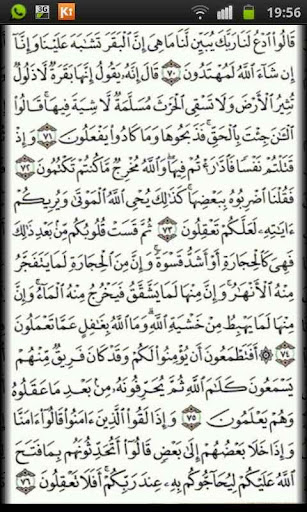 3G K 19:56
قَالُوا۟ ٱدْعُ لَنَا رَبَّكَ يُبَيِّن لَّنَا مَا هِىَ إِنَّ ٱلْبَقَرَ تَشَـٰبَهَ عَلَيْنَا وَإِنَّآ
إِن شَآءَ ٱللَّهُ لَمُهْتَدُونَ ٧٠ قَالَ إِنَّهُۥ يَقُولُ إِنَّهَا بَقَرَةٌ لَّا ذَلُولٌ
تُثِيرُ ٱلْأَرْضَ وَلَا تَسْقِى ٱلْحَرْثَ مُسَلَّمَةٌ لَّا شِيَةَ فِيهَا ۚ قَالُوا۟
ٱلْـَٔـٰنَ جِئْتَ بِٱلْحَقِّ ۚ فَذَبَحُوهَا وَمَا كَادُوا۟ يَفْعَلُونَ ٧١ وَإِذْ
قَتَلْتُمْ نَفْسًا فَٱدَّٰرَْٰٔتُمْ فِيهَا ۖ وَٱللَّهُ مُخْرِجٌ مَّا كُنتُمْ تَكْتُمُونَ ٧٢
فَقُلْنَا ٱضْرِبُوهُ بِبَعْضِهَا ۚ كَذَٰلِكَ يُحْىِ ٱللَّهُ ٱلْمَوْتَىٰ وَيُرِيكُمْ
ءَايَـٰتِهِۦ لَعَلَّكُمْ تَعْقِلُونَ ٧٣ ثُمَّ قَسَتْ قُلُوبُكُم مِّنۢ بَعْدِ ذَٰلِكَ
فَهِىَ كَٱلْحِجَارَةِ أَوْ أَشَدُّ قَسْوَةً ۚ وَإِنَّ مِنَ ٱلْحِجَارَةِ لَمَا يَتَفَجَّرُ
مِنْهُ ٱلْأَنْهَـٰرُ ۚ وَإِنَّ مِنْهَا لَمَا يَشَّقَّقُ فَيَخْرُجُ مِنْهُ ٱلْمَآءُ ۚ وَإِنَّ
مِنْهَا لَمَا يَهْبِطُ مِنْ خَشْيَةِ ٱللَّهِ ۗ وَمَا ٱللَّهُ بِغَـٰفِلٍ عَمَّا تَعْمَلُونَ
٧٤ ۞ أَفَتَطْمَعُونَ أَن يُؤْمِنُوا۟ لَكُمْ وَقَدْ كَانَ فَرِيقٌ مِّنْهُمْ
يَسْمَعُونَ كَلَـٰمَ ٱللَّهِ ثُمَّ يُحَرِّفُونَهُۥ مِنۢ بَعْدِ مَا عَقَلُوهُ
وَهُمْ يَعْلَمُونَ ٧٥ وَإِذَا لَقُوا۟ ٱلَّذِينَ ءَامَنُوا۟ قَالُوٓا۟ ءَامَنَّا
وَإِذَا خَلَا بَعْضُهُمْ إِلَىٰ بَعْضٍ قَالُوٓا۟ أَتُحَدِّثُونَهُم بِمَا فَتَحَ
ٱللَّهُ عَلَيْكُمْ لِيُحَآجُّوكُم بِهِۦ عِندَ رَبِّكُمْ ۚ أَفَلَا تَعْقِلُونَ ٧٦